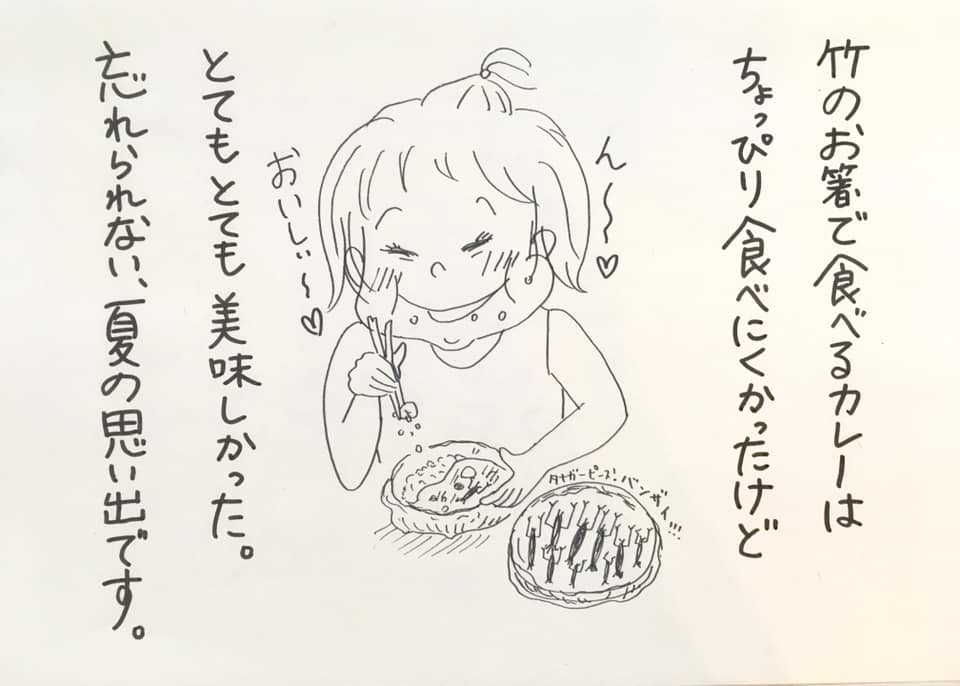 竹のお箸で食べるカレーは
ちょっぴり食べにくかったけど
ん〜〜♡
おいしぃ〜♡
タナガーピーズ・バンザイ!!!
とてもとても美味しかった。
忘れられない、夏の思い出です。